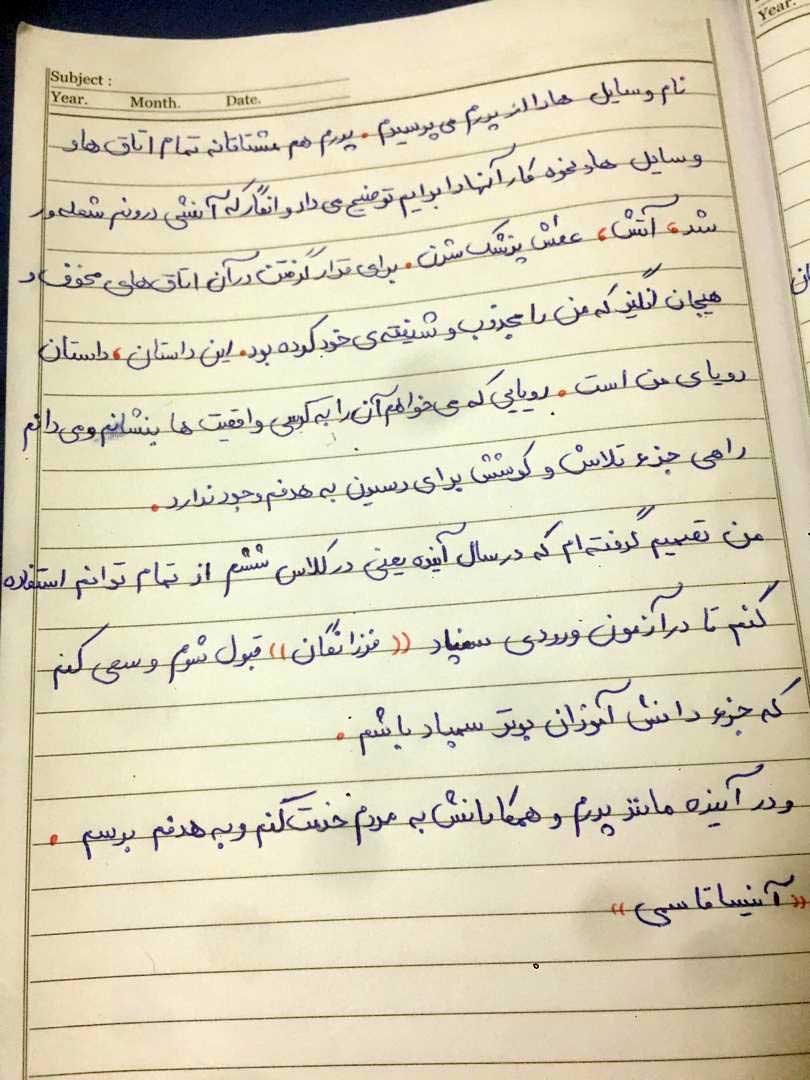 Subject :
Year. Month. Date.
Year.
نام وسایل ها را از پدرم می پرسیدم. پدرم هم مشتاقانه تمام اتاق ها و
وسایل ها و نحوه کار آنها را برایم توضیح می داد و انگار که آتشی درونم شعله ور
شد، آتش، عشق پزشک شدن. برای قرار گرفتن در آن اتاق های مخوف و
هیجان انگیز که من را مجذوب و شیفته ی خود کرده بود. این داستان، داستان
رویای من است. رویایی که می خواهم آن را به کرسی واقعیت ها بنشانم و می دانم
راهی جزء تلاش و کوشش برای رسیدن به هدفم وجود ندارد.
من تصمیم گرفته ام که در سال آینده یعنی در کلاس ششم از تمام توانم استفاده
کنم تا در آزمون ورودی سمپاد ((فرزانگان)) قبول شوم و سعی کنم
که جزء دانش آموزان برتر سمپاد باشم.
و در آینده مانند پدرم و همکارانش به مردم خدمت کنم و به هدفم برسم.
((آنیسا قاسمی))